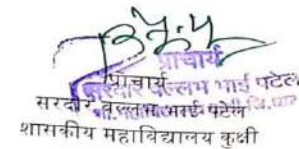 प्राचार्य
प्राचार्य
सरदार वल्लभ भाई पटेल
सरदार वल्लभ भाई पटेल
शासकीय महाविद्यालय कुक्षी